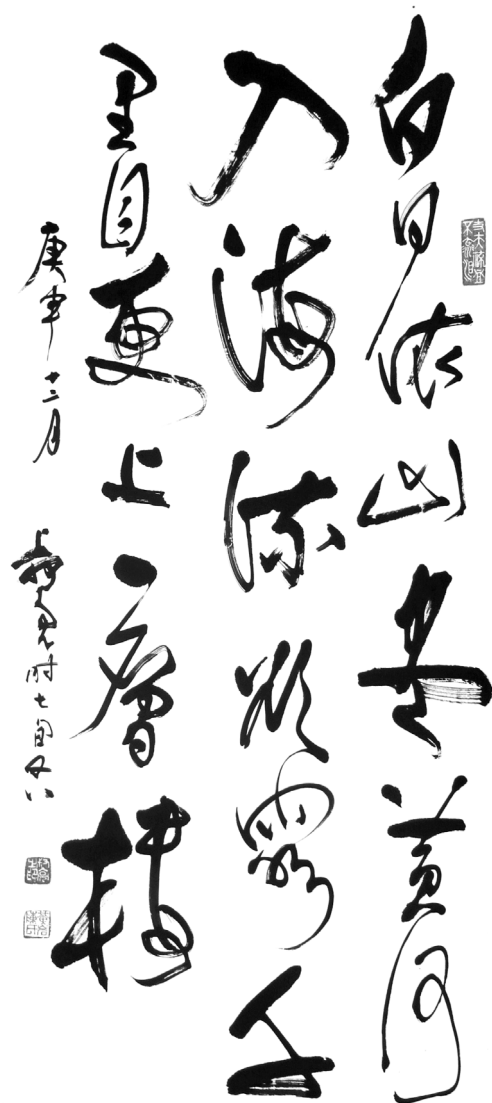 白日依山尽黄河
入海流欲穷千
里目更上一层楼
庚申十二月
时七旬又八